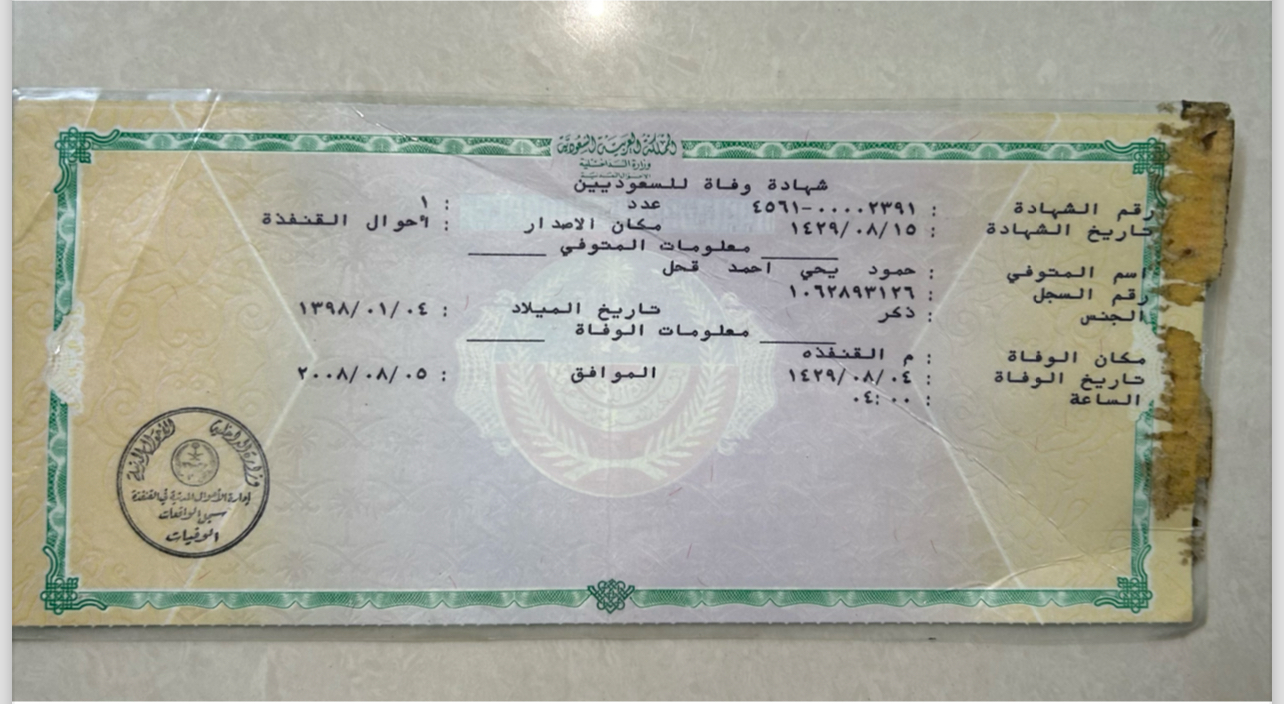 المملكة العربية السعودية
وزارة الداخلية
الأحوال المدنية
شهادة وفاة للسعوديين
رقم الشهادة : ٤٥٦١-٠٠٠٠٢٣٩١ عدد : ١
تاريخ الشهادة : ١٤٢٩/٠٨/١٥ مكان الاصدار : احوال القنفذة
معلومات المتوفي
اسم المتوفي : حمود يحي احمد قحل
رقم السجل : ١٠٦٢٨٩٣١٢٦
الجنس : ذكر تاريخ الميلاد : ١٣٩٨/٠١/٠٤
معلومات الوفاة
مكان الوفاة : م القنفذه
تاريخ الوفاة : ١٤٢٩/٠٨/٠٤ الموافق : ٢٠٠٨/٠٨/٠٥
الساعة : ٠٤:٠٠
وزارة الداخلية الأحوال المدنية
إدارة الأحوال المدنية في القنفذة
سجل الواقعات
الوفيات